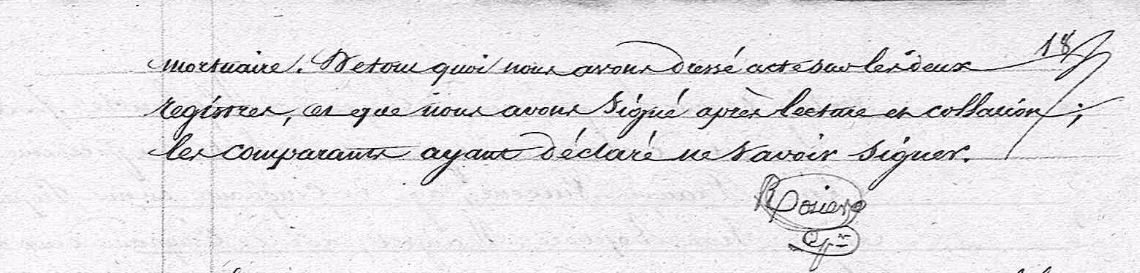 18
mortuaire. De tout quoi nous avons dressé acte sur les deux
registres, et que nous avons signé après lecture et collation;
les comparants ayant déclaré ne savoir signer.
Rosier